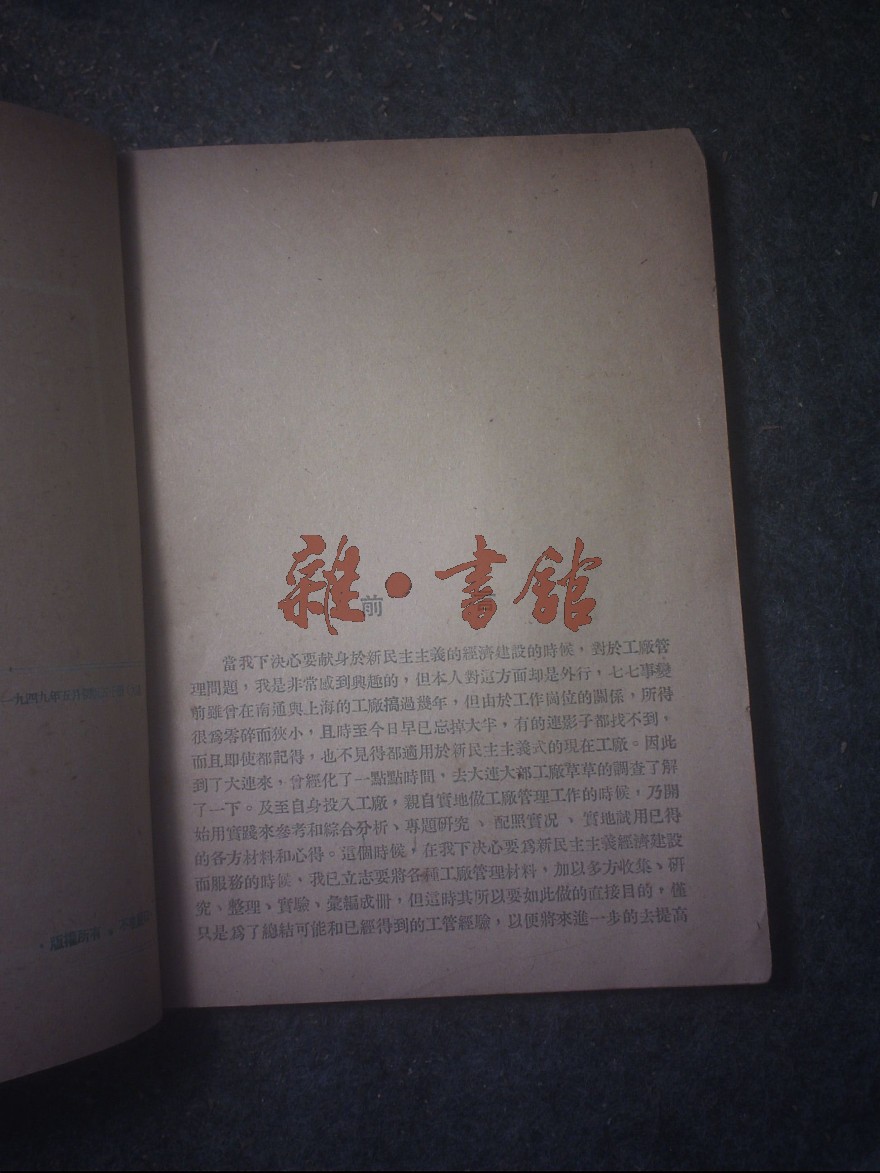 雜·書舘
前
當我下決心要献身於新民主主義的經濟建設的時候，對於工廠管
理問題，我是非常感到興趣的，但本人對這方面却是外行，七七事變
前雖曾在南通與上海的工廠搞過幾年，但由於工作崗位的關係，所得
很爲零碎而狹小，且時至今日早已忘掉大半，有的連影子都找不到，
而且即使都記得，也不見得都適用於新民主主義式的現在工廠。因此
到了大連來，曾經化了一點點時間，去大連大部工廠草草的調查了解
了一下。及至自身投入工廠，親自實地做工廠管理工作的時候，乃開
始用實踐來參考和綜合分析、專題研究、配照實况、實地試用已得
的各方材料和心得。這個時候，在我下決心要爲新民主主義經濟建設
而服務的時候，我已立志要將各種工廠管理材料，加以多方收集、研
究、整理、實驗、彙編成册，但這時其所以要如此做的直接目的，僅
只是爲了總結可能和已經得到的工管經驗，以便將來進一步的去提高
一九四九年五月
版權所有，不